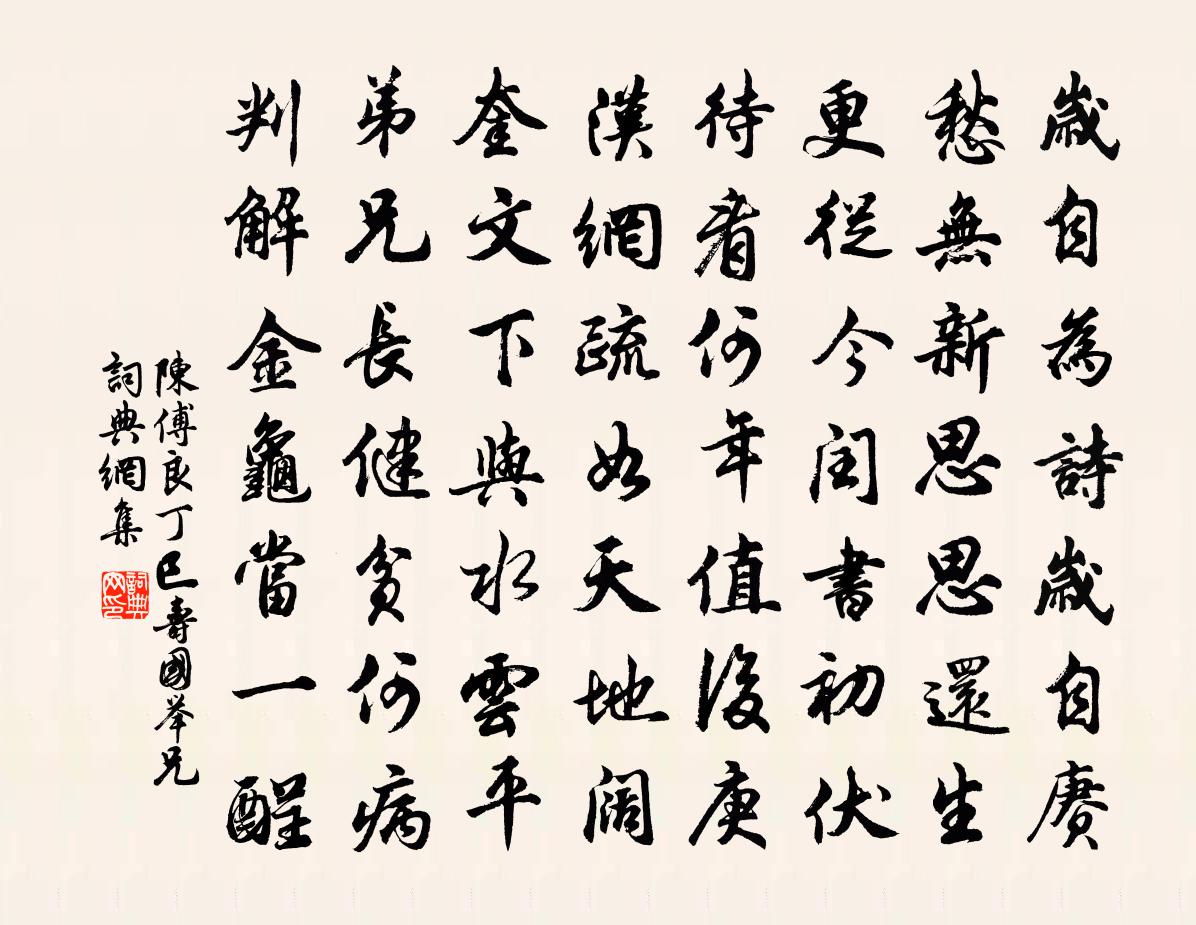 歲自為詩歲自賡
愁無新思思還生
更從今閏書初伏
待看何年值後庚
漢網疏如天地闊
奎文下與水雲平
弟兄長健貧何病
判解金龜當一酲
陳傅良丁巳壽國舉兄
詞典網集
詞典网印